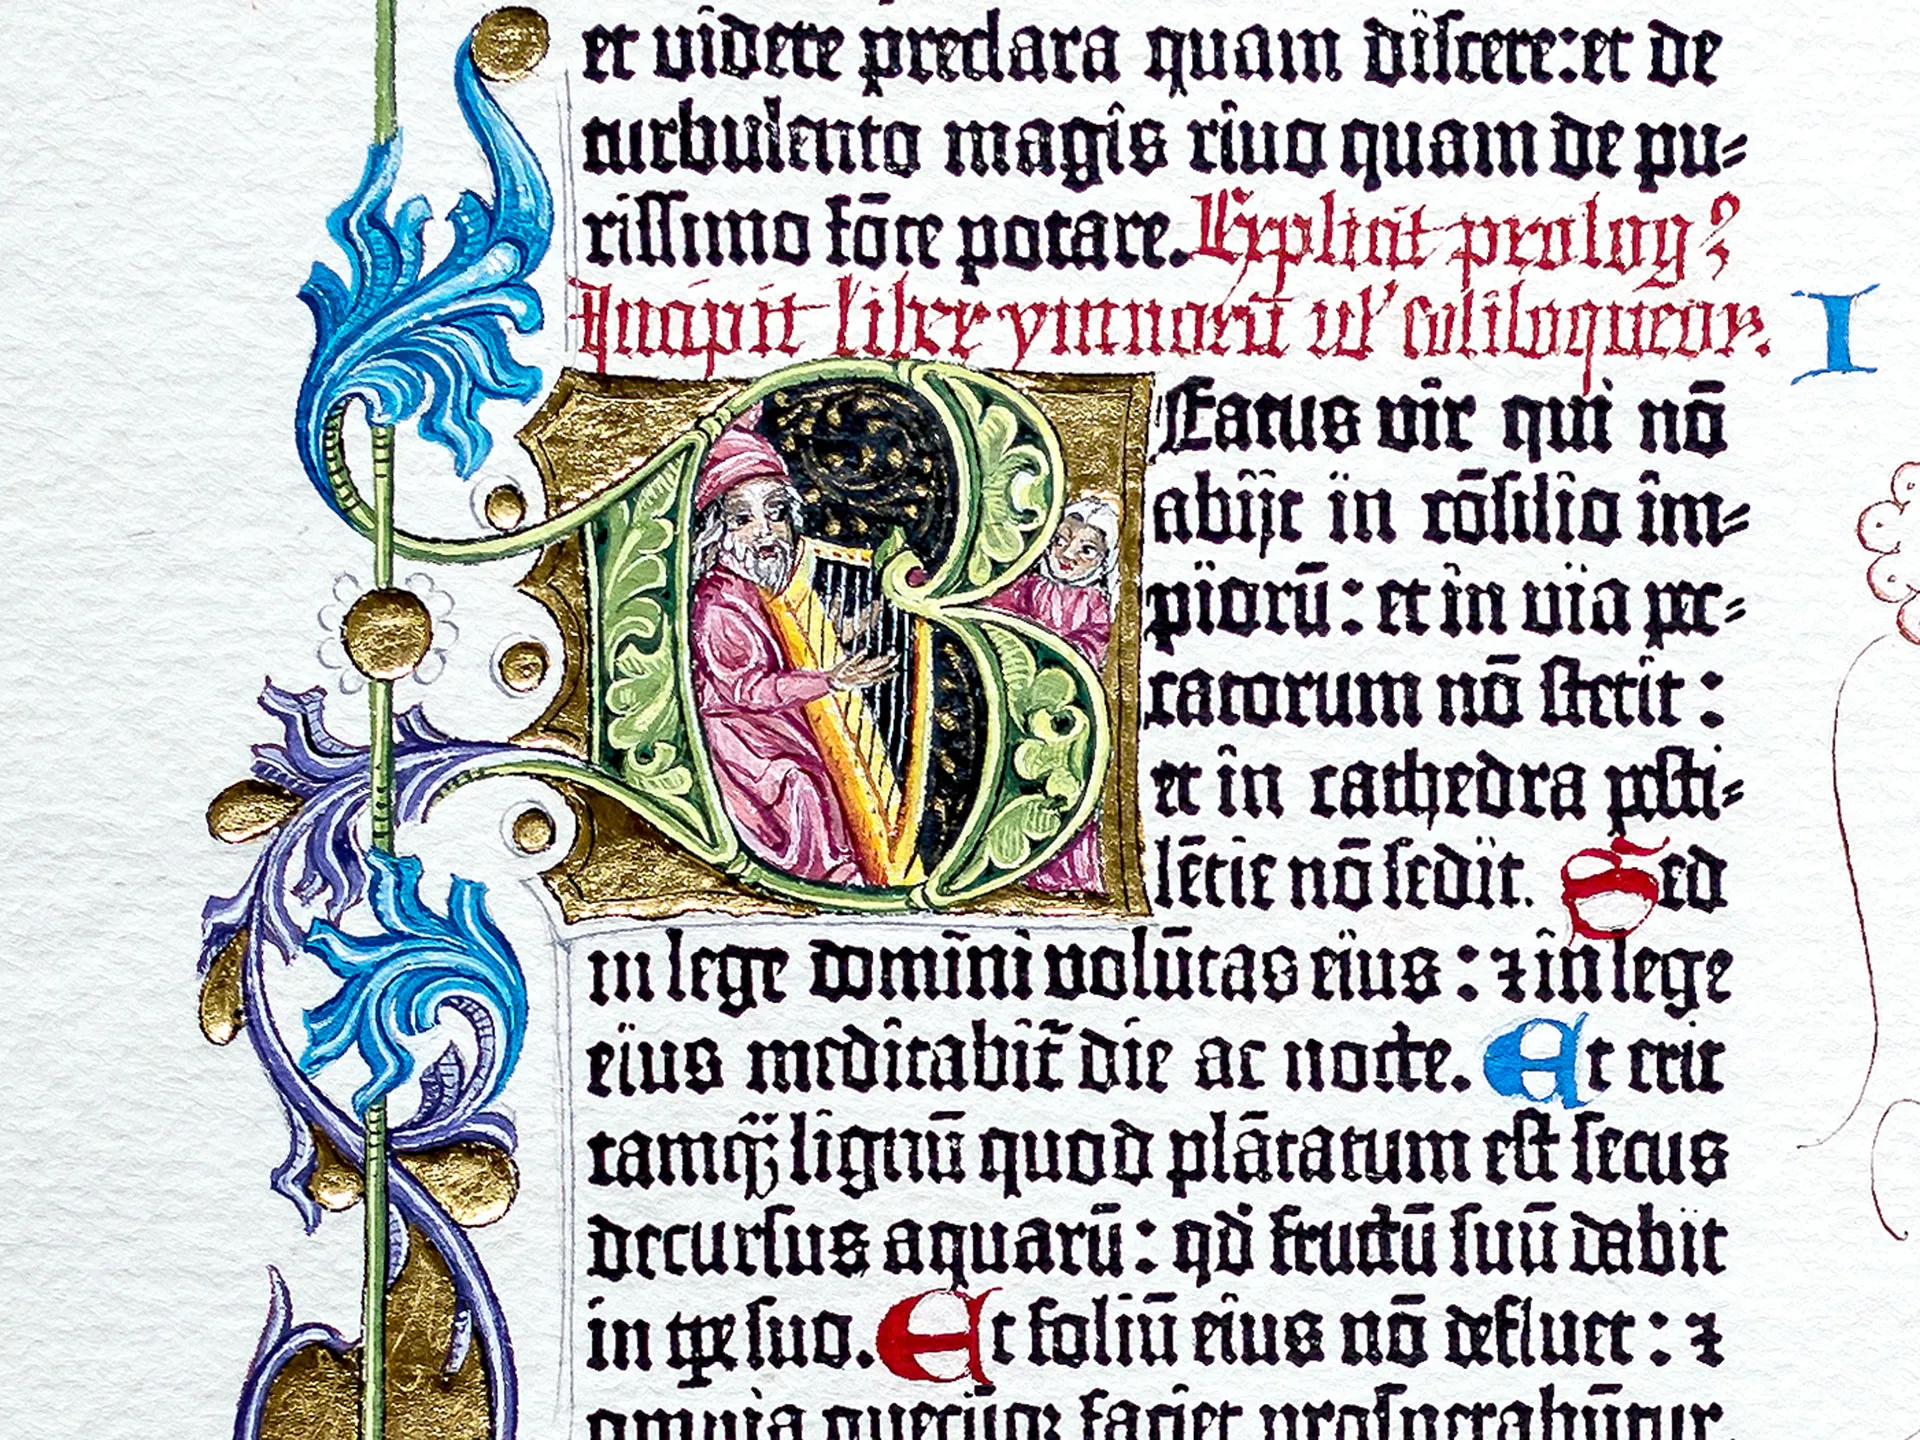 et videre preclara quam discere: et de
turbulento magis rivo quam de pu-
rissimo fōte potare. Explicit prolog9
Incipit liber ymnorū vl' soliloquiorꝝ. I
Beatus vir qui nō
abijt in cōsilio im-
piorū: et in via pec-
catorum nō stetit:
et in cathedra pesti-
lētie nō sedit. Sed
in lege domini volūtas eius: ⁊ in lege
eius meditabit̄ die ac nocte. Et erit
tamqꝫ lignū quod plātatum est secus
decursus aquarū: qd̄ fructū suū dabit
in tꝑe suo. Et foliū eius nō defluet: ⁊
omnia quecūqꝫ faciet prosperabūtur.